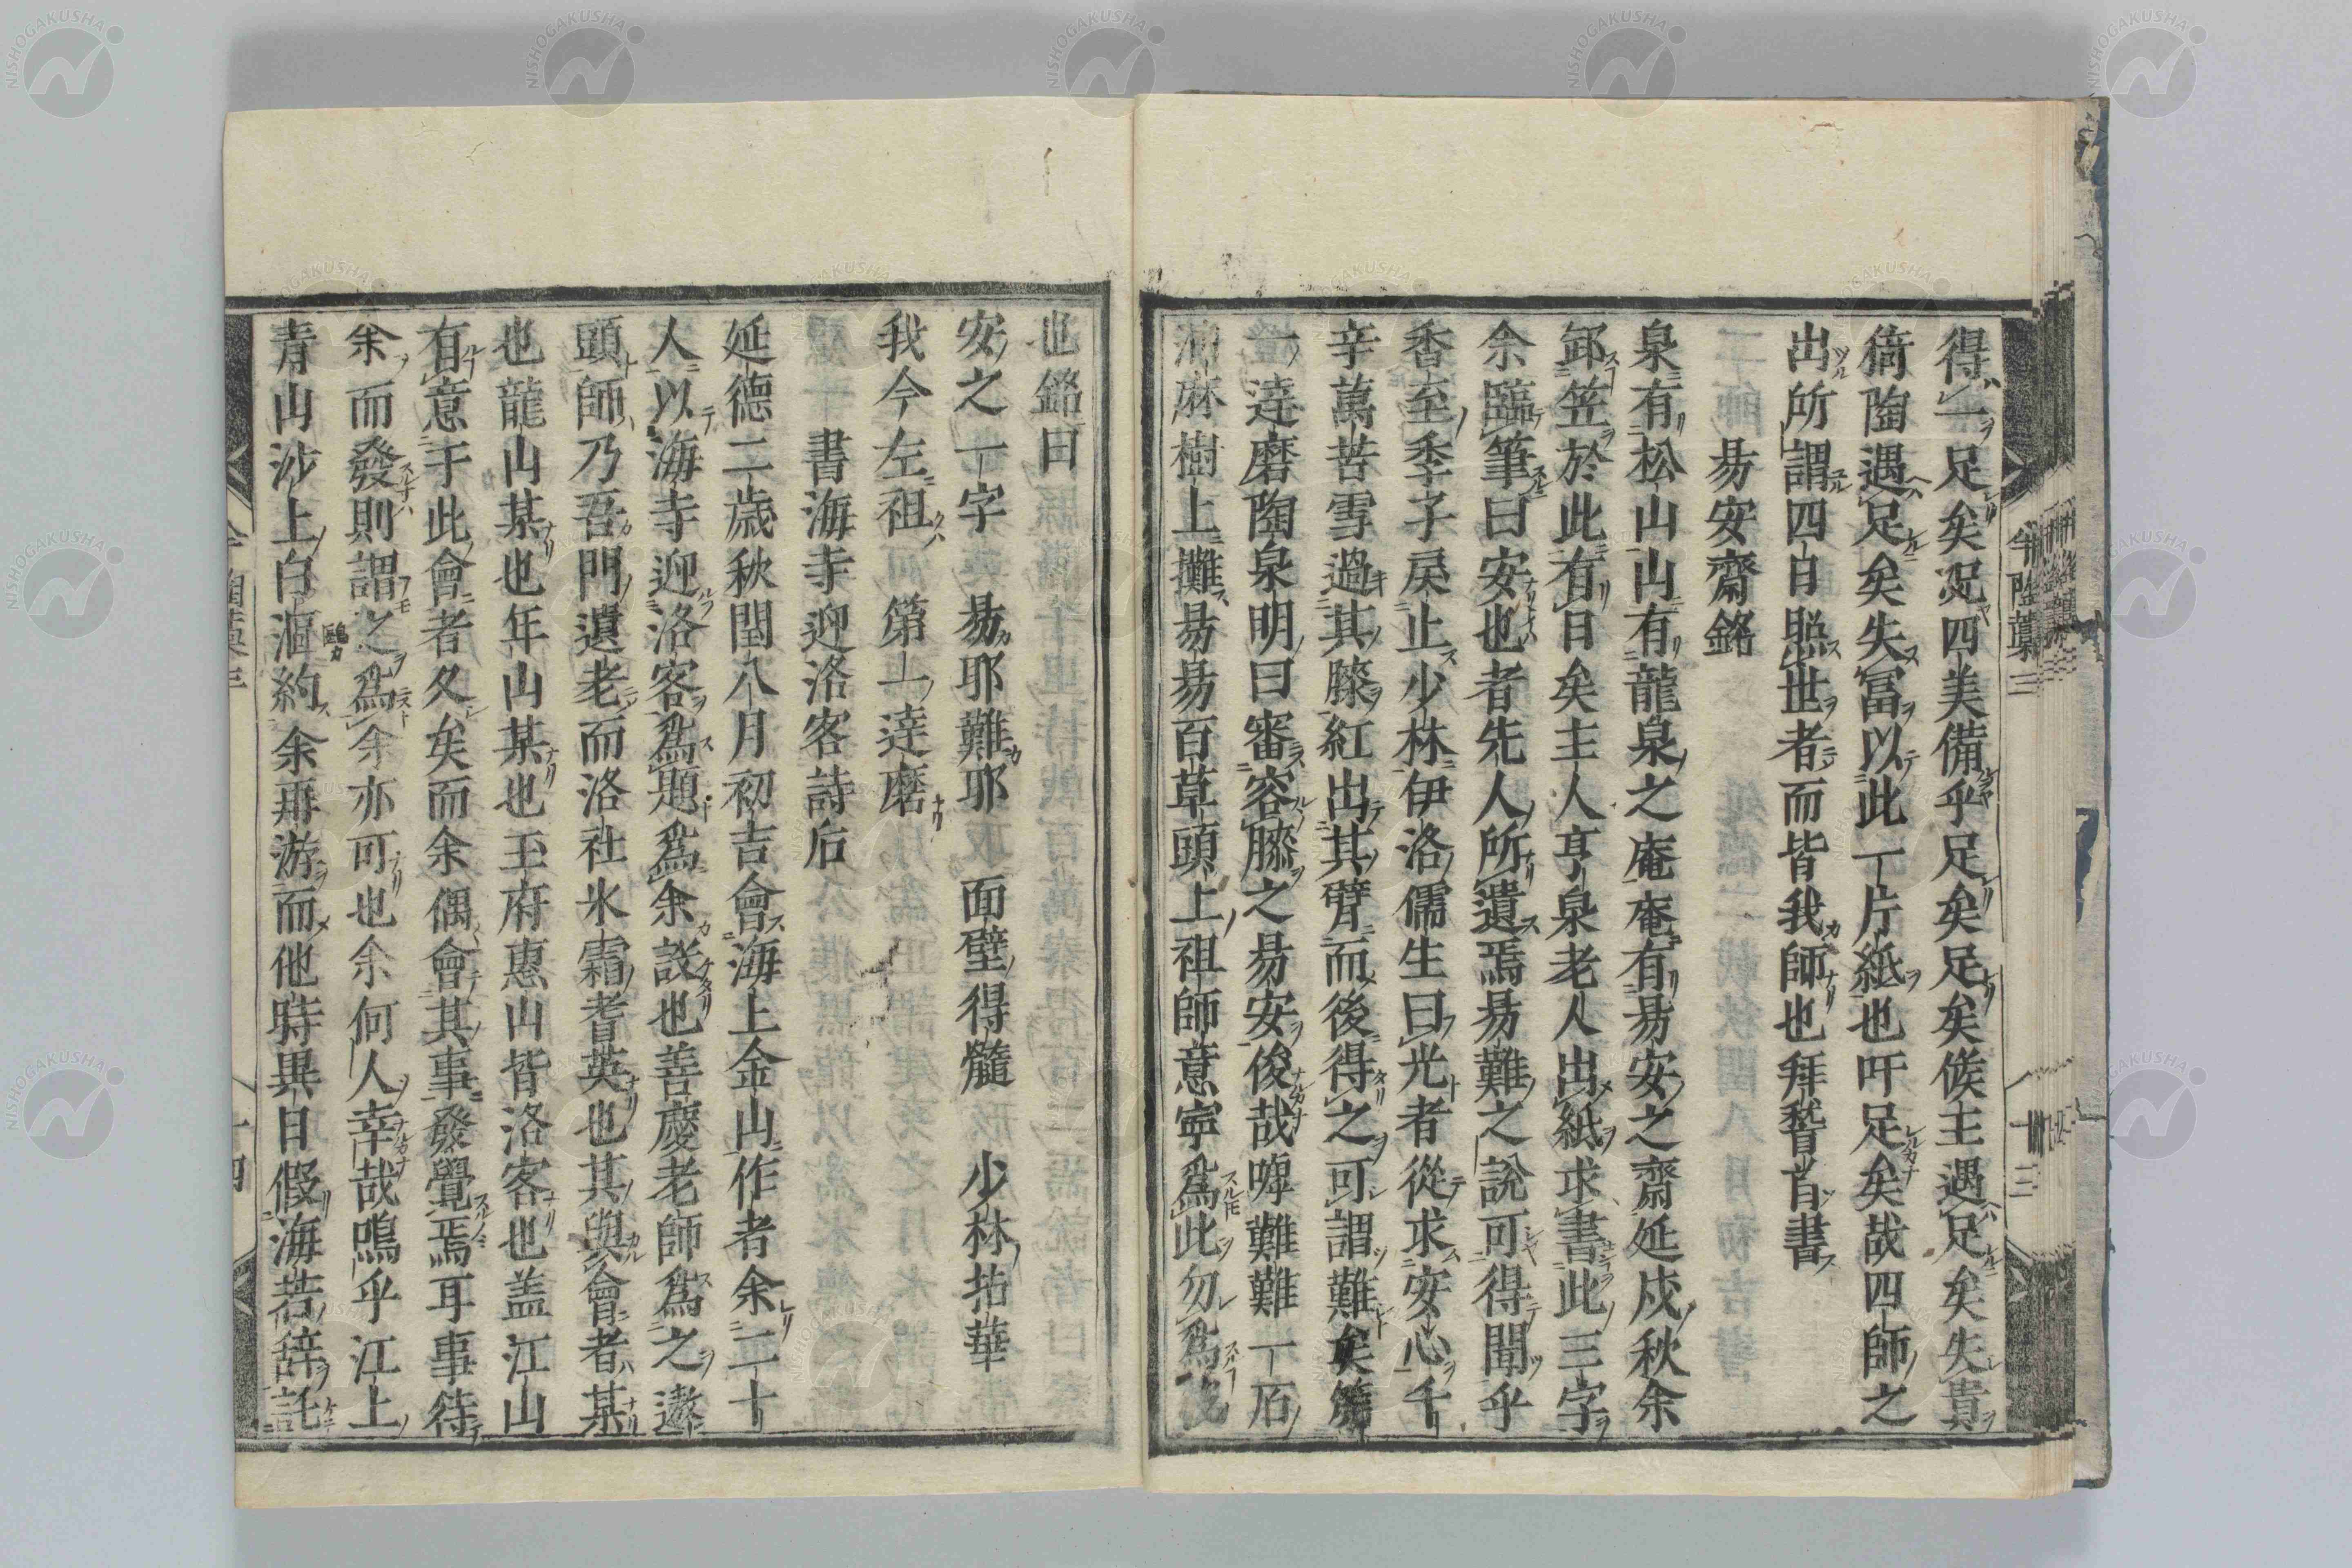 得一足矣況四美備乎足矣足矣倏主遇足矣失貴
猗陶遇足矣失富以此一片紙也吁足矣哉四師之
出所謂四日照世者而皆我師也拜稽首書
易安齋銘
泉有松山山有龍泉之庵庵有易安之齋延戌秋余
卸笠於此有日矣主人亨泉老人出紙求書此三字
余臨筆曰安也者先人所遺焉易難之說可得聞乎
香至季子戻止少林伊洛儒生曰光者從求安心千
辛萬苦雪過其膝紅出其臂而後得之可謂難矣第
一達磨陶泉明曰審容膝之易安俊哉嘷難難一石
油麻樹上攤易易百草頭上祖師意寧爲此勿爲彼
也銘曰
安之一字 易耶難耶 面壁得髓 少林拈華
我今左祖 第一達磨
書海寺迎洛客詩后
延德二歲秋閏八月初吉會海上金山作者余二十
人以海寺迎洛客爲題爲余設也善慶老師爲之遨
頭師乃吾門遺老而洛社氷霜耆英也其與會者某
也龍山某也年山某也王府惠山皆洛客也盖江山
有意于此會者久矣而余偶會其事發覺焉耳事待
余而發則謂之爲余亦可也余何人幸哉嗚乎江上
青山沙上白漚約余再游而他時異日假海若辞託
鷗カ
今陶藁三
十三
十四